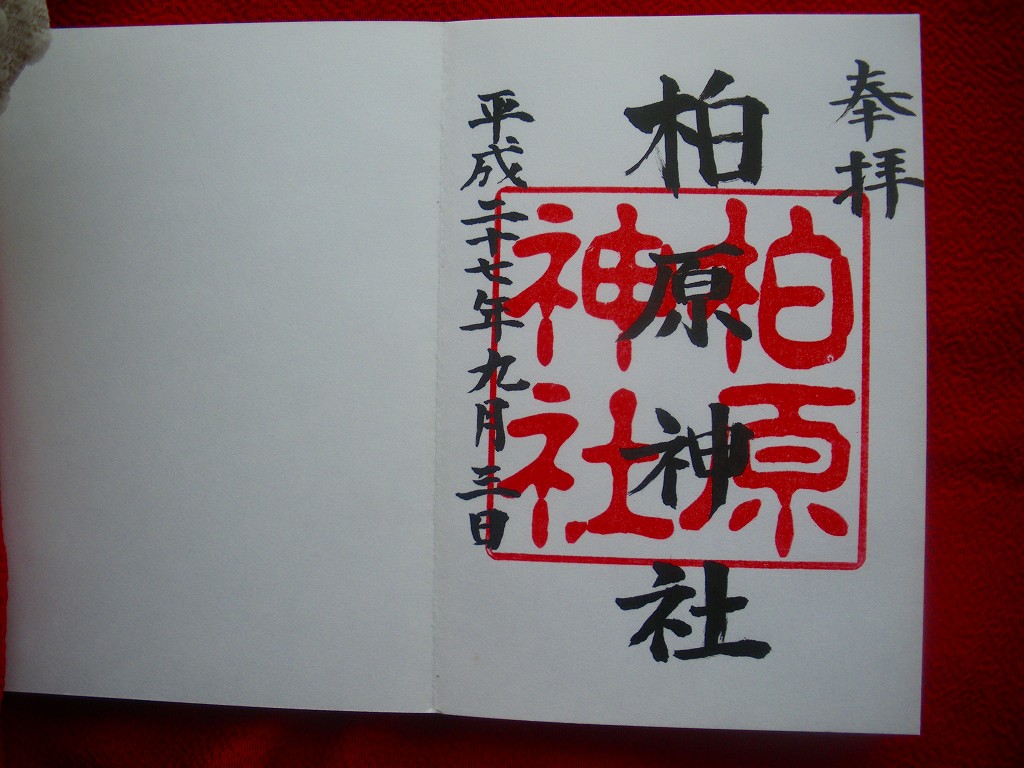 奉拝
柏原神社
柏原
神社
平成二十七年九月三日